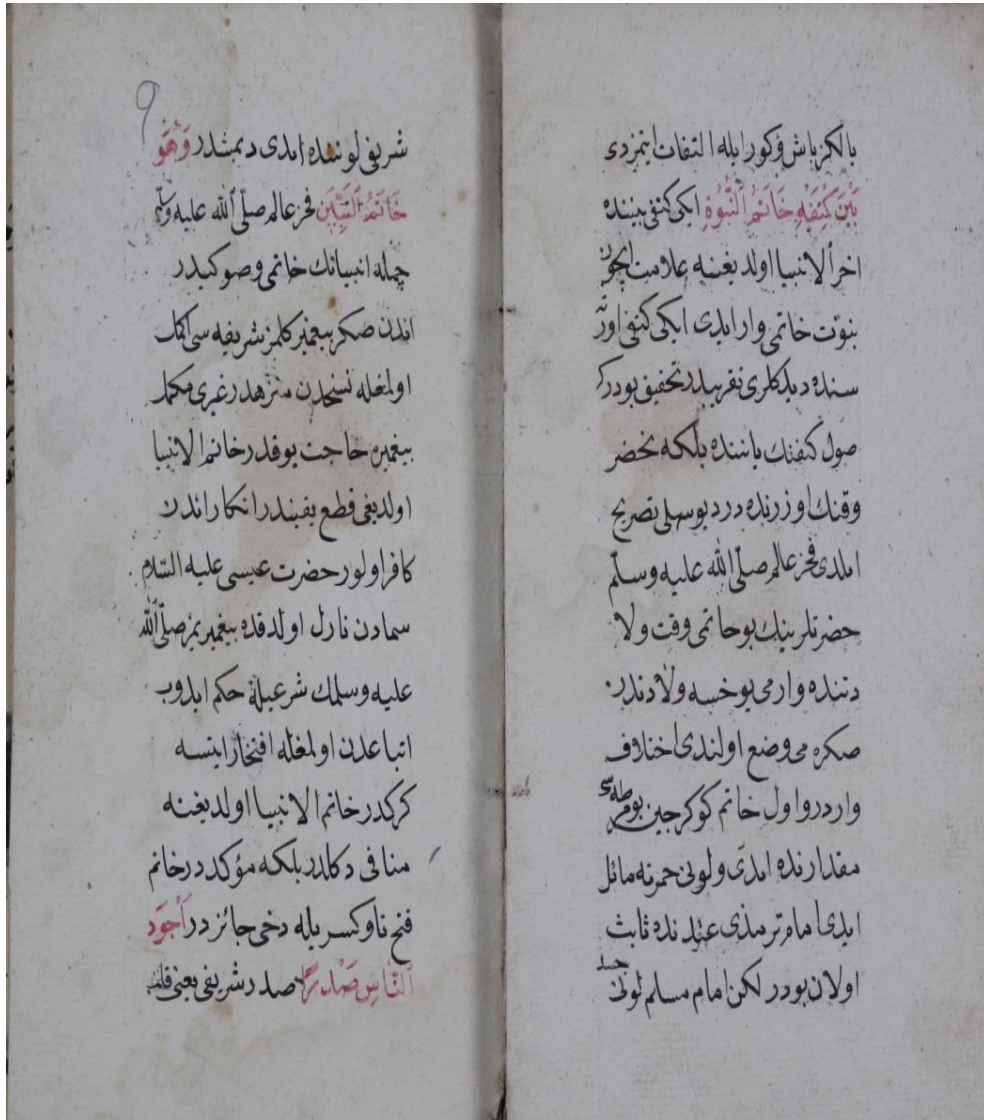 يالكز باش و كوز ايله التفات ايتمزدى
بَيْنَ كَتِفَيْهِ خَاتَمُ النُّبُوَّةِ ايكى كتفى بيننده
اخر الانبيا اولديغينه علامت ايچون
نبوّت خاتمى وار ايدى ايكى كتفى اورته
سنده ديدكلرى تقريبيدر تحقيق بودركه
صول كتفنك باشنده بلكه
اوزرنده در ديو سهيلى تصريح
ايلدى فخر عالم صلّى الله عليه وسلّم
حضرتلرينك بو خاتمى وقت ولا
دتنده وارمى يوخسه ولادتدن
صكره مى وضع اولندى اختلاف
واردر و اول خاتم كوكرجين يومرطه سى
مقدارنده ايدى ولونى حمرته مائل
ايدى امام ترمذى عندنده ثابت
اولان بودر لكن امام مسلم لونى جسد
٩
شريفى لوننده ايدى ديمشدر وَهُوَ
خَاتَمُ النَّبِيِّينَ فخر عالم صلّى الله عليه وسلّم
جمله انبيانك خاتمى وصوكيدر
اندن صكره پيغمبر كلمز شريفه سى اكمل
اولمغله نسخدن منزهدر غيرى مكمل
پيغمبره حاجت يوقدر خاتم الانبيا
اولديغى قطع يقيندر انكار ايدن
كافر اولور حضرت عيسى عليه السّلام
سمادن نازل اولدقده پيغمبريمز صلّى الله
عليه وسلمك شرعيله حكم ايدوب
اتباعدن اولمغله افتخار ايتسه
كركدر خاتم الانبيا اولديغنه
منافى دكلدر بلكه مؤكددر خاتم
فتح تا و كسريله دخى جائزدر اَجْوَدَ
النَّاسِ صَدْرًا صدر شريفى يعنى قلب